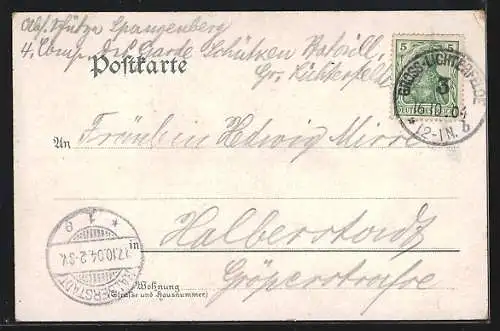 Abs. Schütze Spangenberg
4. Comp. des Garde Schützen Bataill.
Gr. Lichterfelde
Postkarte
5
GROSS-LICHTERFELDE
3
16.10.04
12-1N.
b
An Fräulein Hedwig
in Halberstadt
Gröperstraße
Wohnung
(Straße und Hausnummer)
HALBERSTADT
17.10.04.2-3V.
1
e